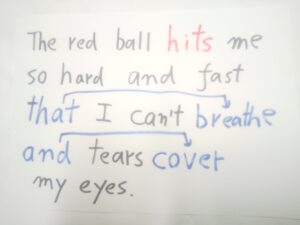 The red ball hits me
so hard and fast
that I can't breathe
and tears cover
my eyes.